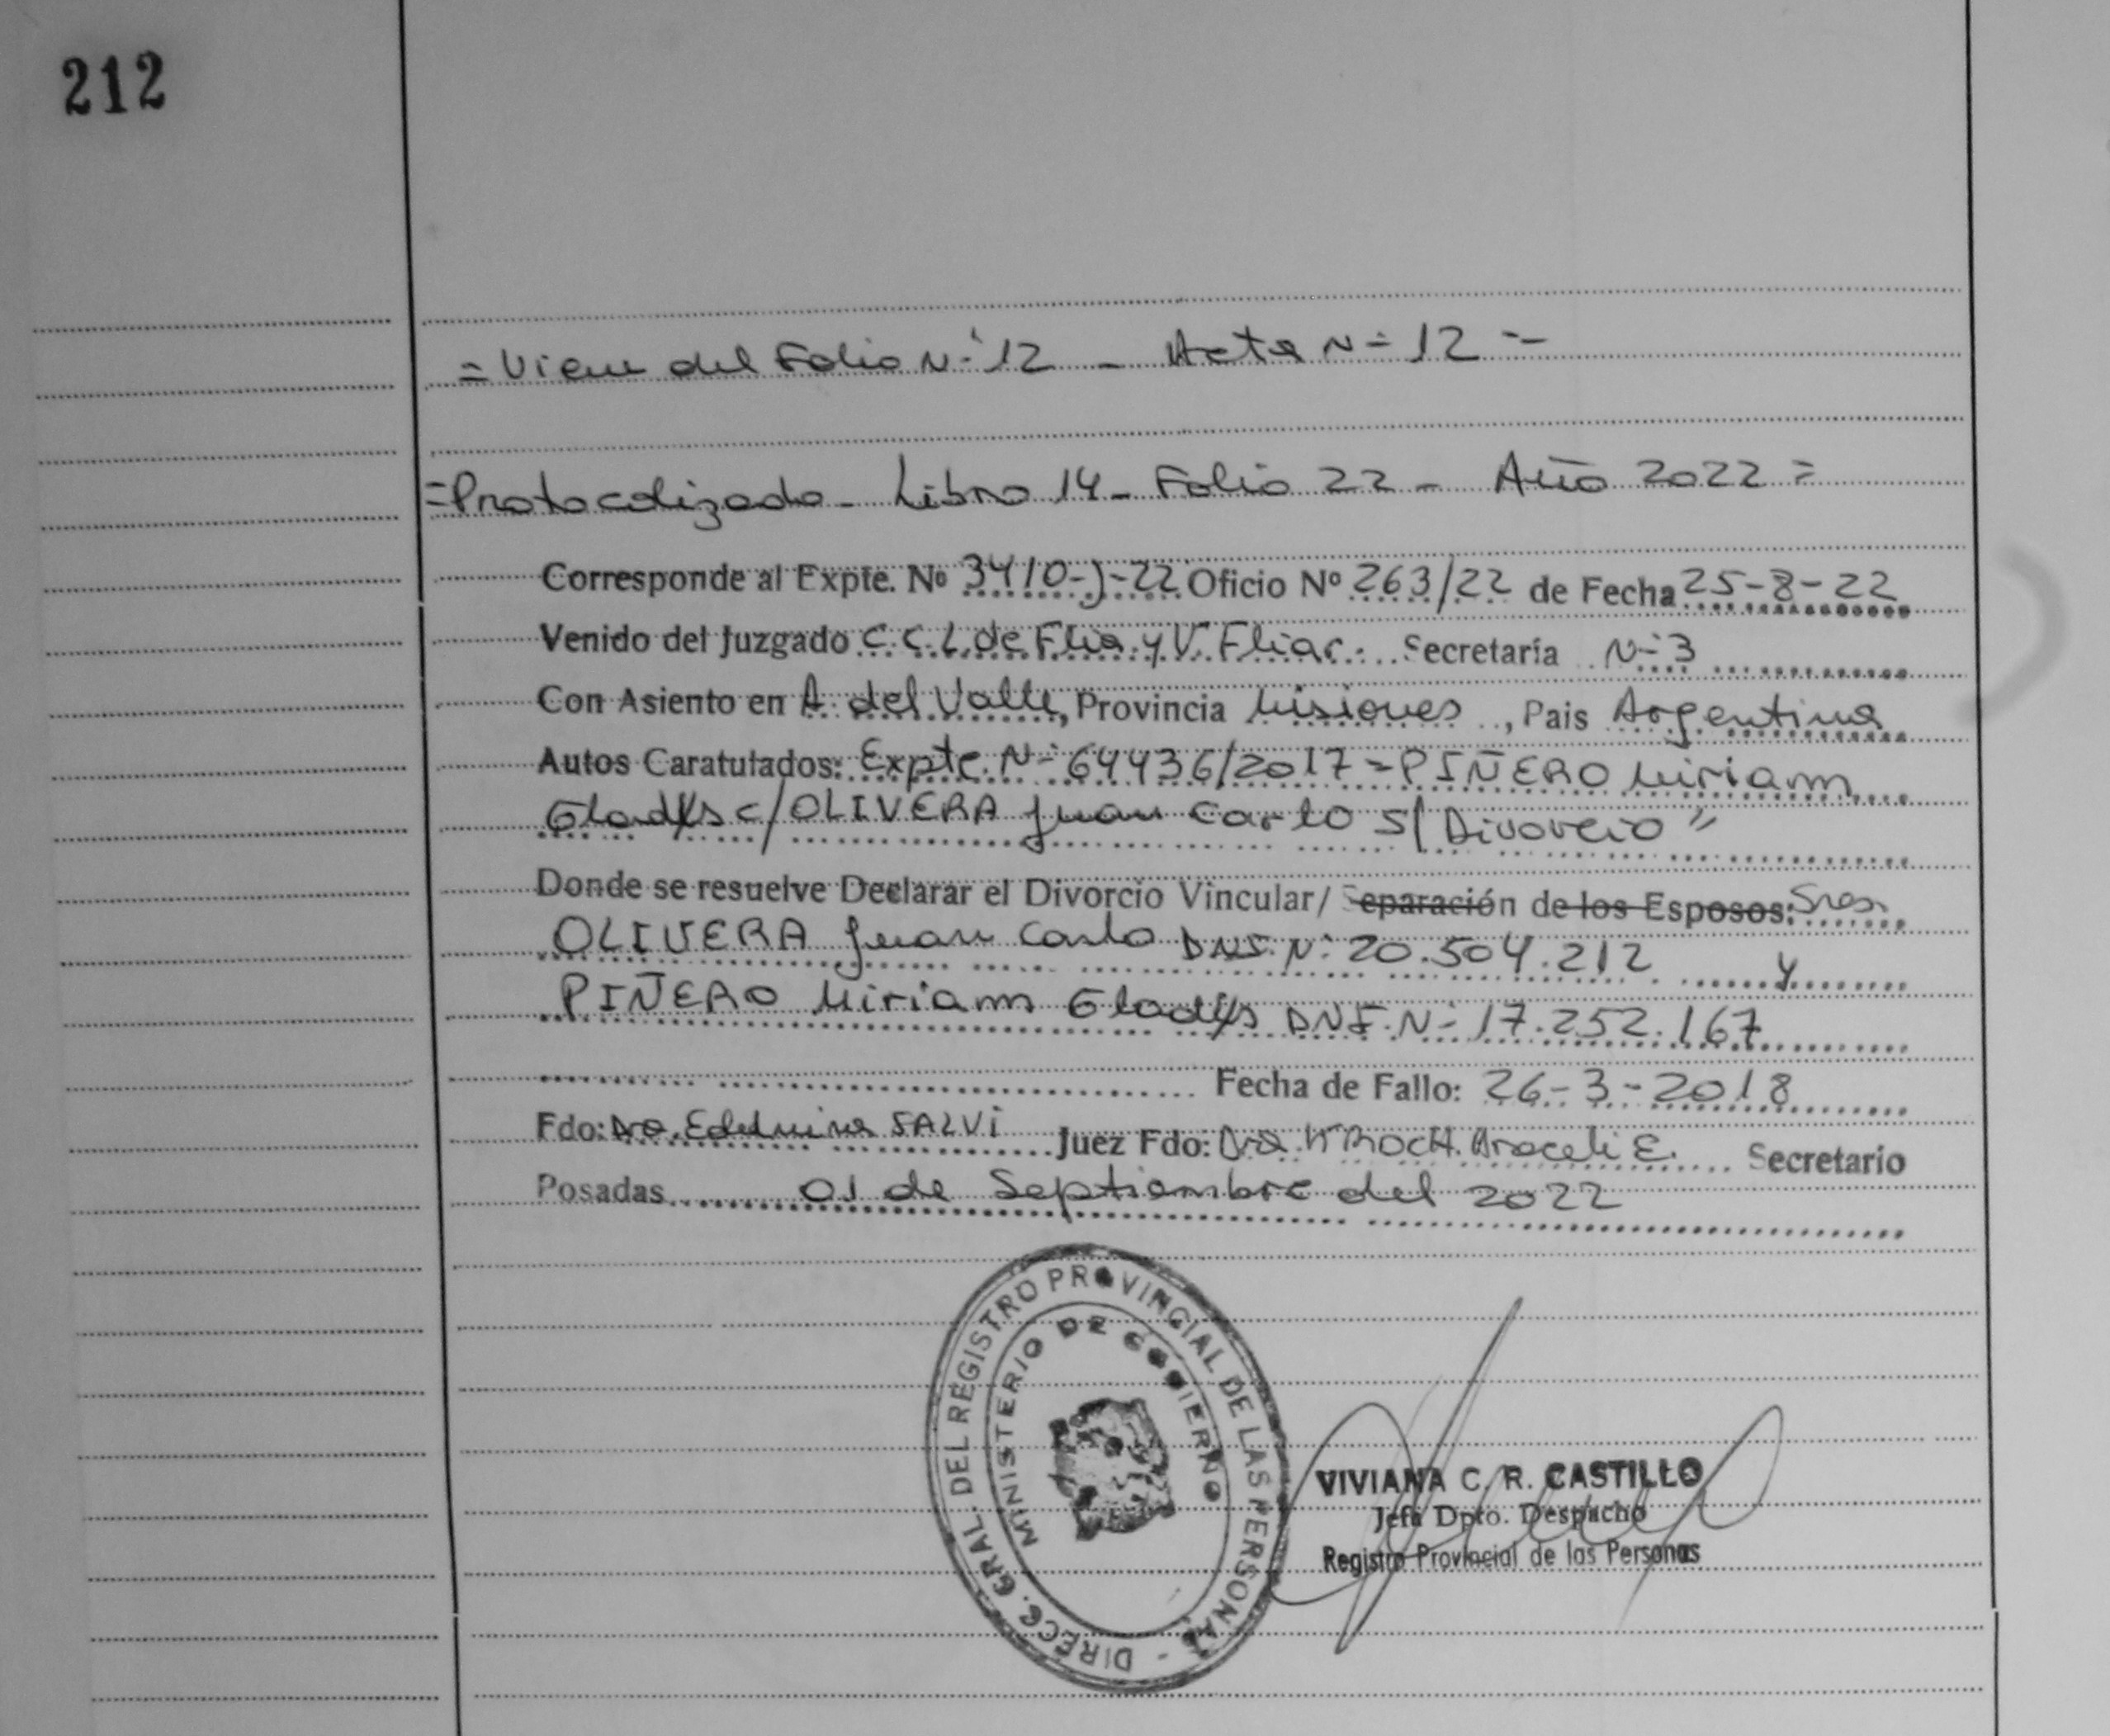 212
= Viene del Folio N° 12 - Acta N° 12 =
= Protocolizado - Libro 14 - Folio 22 - Año 2022 =
Corresponde al Expte. Nº 3410-J-22 Oficio Nº 263/22 de Fecha 25-8-22
Venido del Juzgado C.C.L. de Flia. y V. Fliar. Secretaría N° 3
Con Asiento en A. del Valle, Provincia Misiones, Pais Argentina
Autos Caratulados: Expte. N° 64436/2017 = PIÑERO Miriam
Gladys c/ OLIVERA Juan Carlo s/ Divorcio"
Donde se resuelve Declarar el Divorcio Vincular/ Separación de los Esposos: Sres.
OLIVERA Juan Carlo DNI. N° 20.504.212 y
PIÑERO Miriam Gladys DNI. N° 17.252.167
Fecha de Fallo: 26-3-2018
Fdo: Dra. Edelmira SALVI Juez Fdo: Dra. Araceli E. Secretario
Posadas 01 de Septiembre del 2022
DIRECC. GRAL. DEL REGISTRO PROVINCIAL DE LAS PERSONAS -
MINISTERIO DE GOBIERNO
VIVIANA C. R. CASTILLO
Jefa Dpto. Despacho
Registro Provincial de las Personas